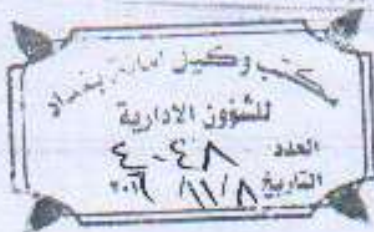 مكتب وكيل امانة بغداد
للشؤون الادارية
العدد ٤٠٤٨
التاريخ ٨ / ١١ / ٢٠١٦